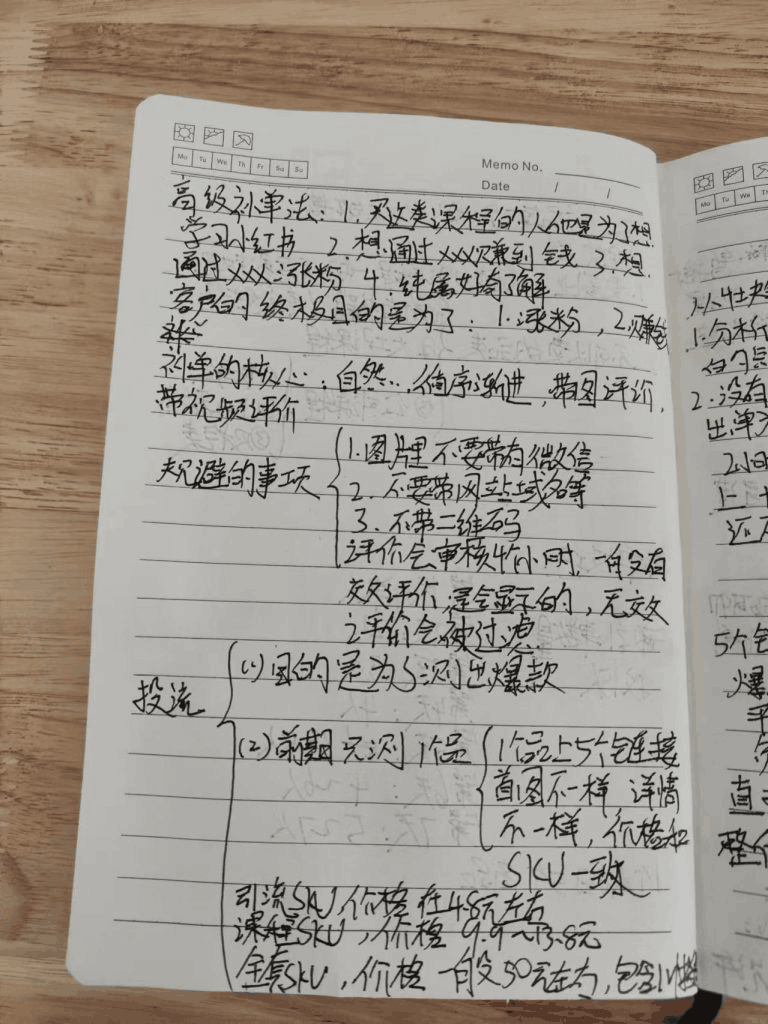 Mo Tu We Th Fr Sa Su
Memo No.
Date / /
高级补单法: 1. 买这类课程的人他是为了想
学习小红书 2. 想通过xxx赚到钱 3. 想
通过xxx涨粉 4. 纯属好奇了解
客户的终极目的是为了: 1. 涨粉, 2. 赚钱
补单的核心: 自然, 循序渐进, 带图评价,
带视频评价
规避的事项
1. 图片里不要带有微信
2. 不要带网站域名等
3. 不带二维码
评价会审核4个小时, 一般没有
效评价, 是会显示的, 无效
评价会被过滤
投流
(1) 目的是为了测出爆款
(2) 前期只测1个品
1个品上5个链接
首图不一样 详情
不一样, 价格和
SKU一致
引流SKU, 价格在4.8元左右
课程SKU, 价格 9.9~13.8元
全套SKU, 价格一般50元左右, 包含
Mo Tu We Th
1. 分析
2. 没有
出单
2小时
还
5个
爆
直
整个